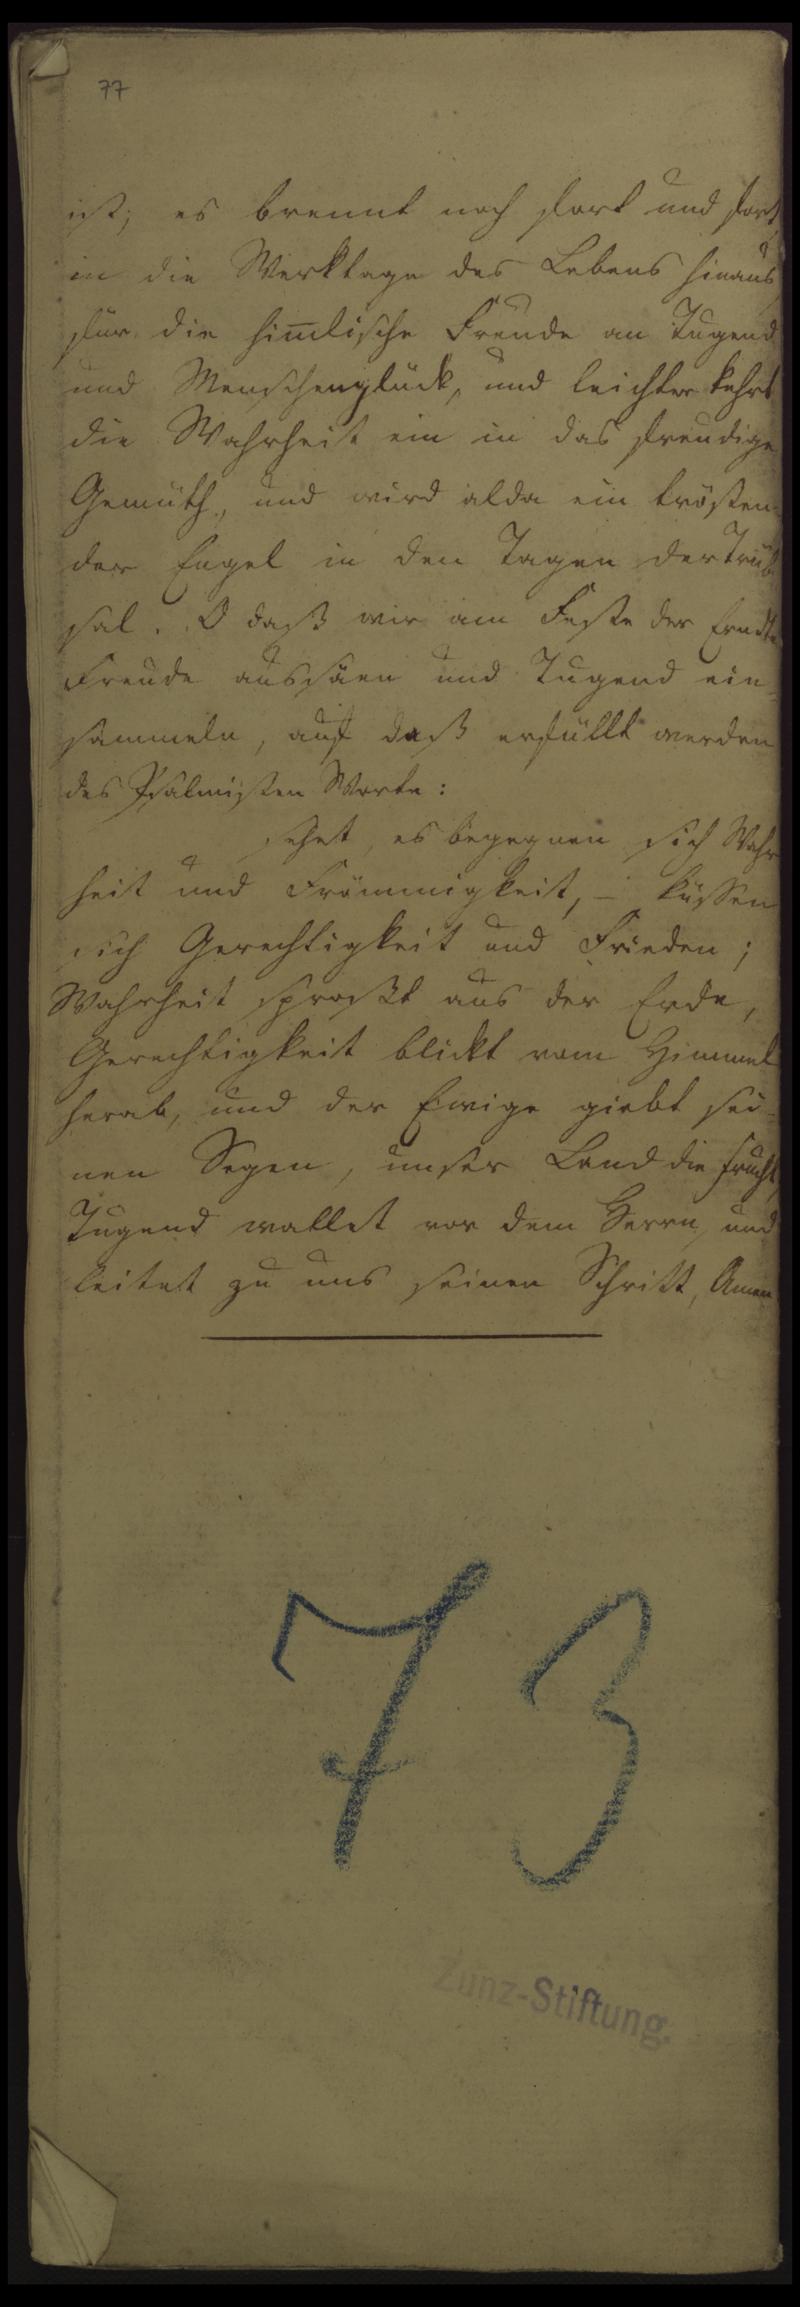 77
ist; es brennt noch fort und fort
in die Werktage des Lebens hinaus
für die him̅lische Freude an Tugend
und Menschenglück, und leichter kehrt
die Wahrheit ein in das freudige
Gemüth, und wird alda ein trösten-
der Engel in den Tagen der Trüb
sal. O daß wir am Feste der Erndte
Freude aussäen und Tugend ein-
sammeln, auf daß erfüllt werden
des Psalmisten Worte:
sehet, es begegnen sich Wahr
heit und Frömmigkeit, – küssen
sich Gerechtigkeit und Frieden;
Wahrheit sproßt aus der Erde,
Gerechtigkeit blickt vom Himmel
herab, und der Ewige giebt sei-
nen Segen, unser Land die Frucht,
Tugend wallet vor dem Herrn, und
leitet zu uns seinen Schritt, Amen
73
Zunz-Stiftung.